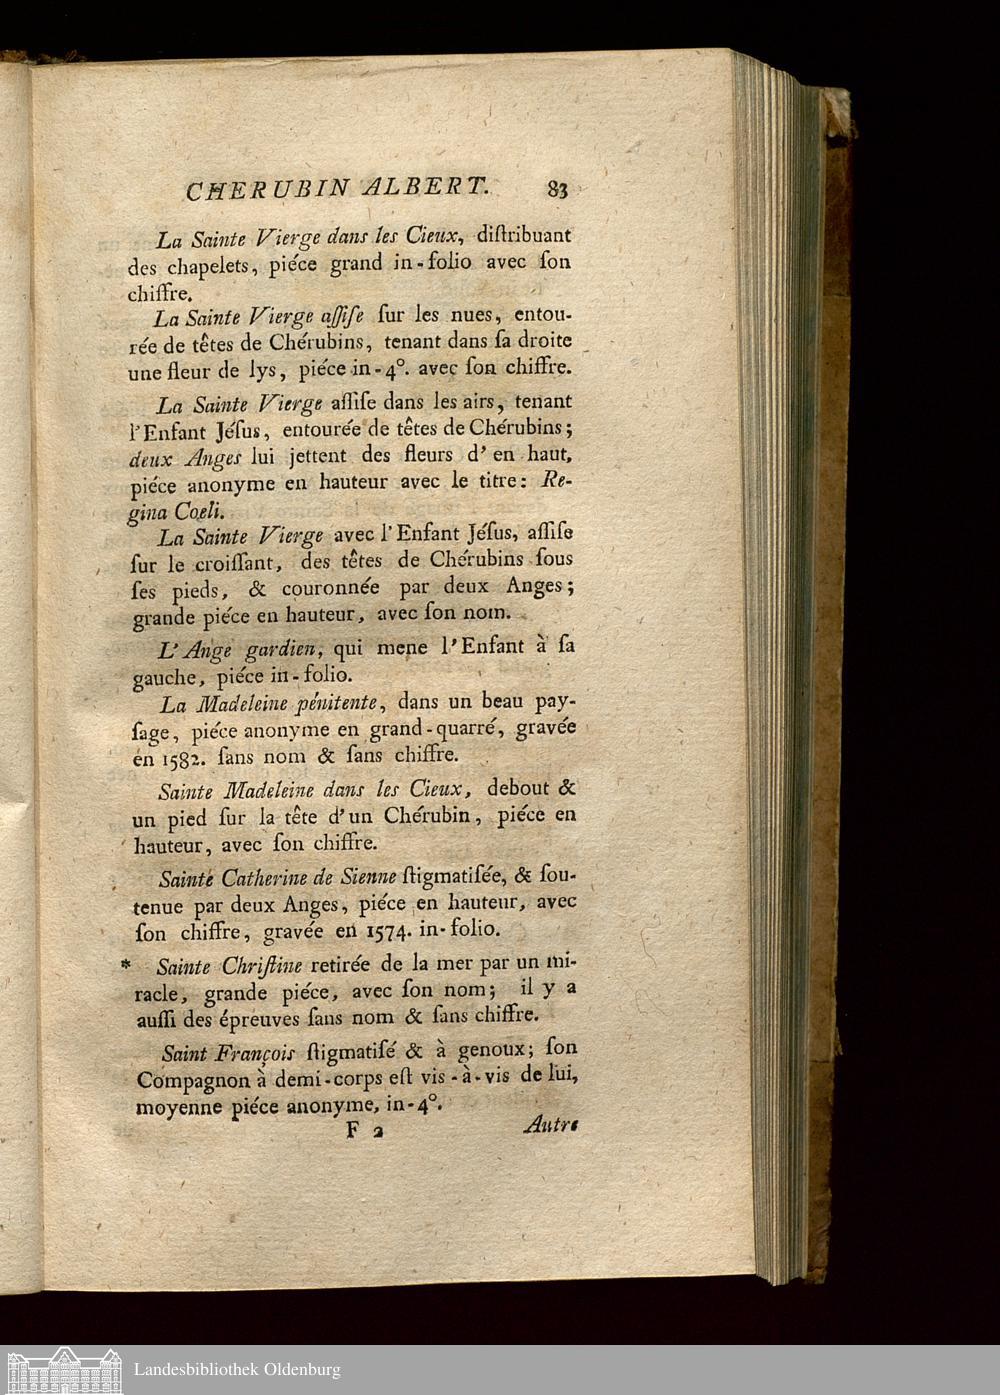 CHERUBIN ALBERT. 83
La Sainte Vierge dans les Cieux, diſtribuant
des chapelets, piéce grand in-folio avec ſon
chiffre.
La Sainte Vierge aſſiſe ſur les nues, entou-
rée de têtes de Chérubins, tenant dans ſa droite
une fleur de lys, piéce in-4°. avec ſon chiffre.
La Sainte Vierge aſſiſe dans les airs, tenant
l'Enfant Jéſus, entourée de têtes de Chérubins;
deux Anges lui jettent des fleurs d'en haut,
piéce anonyme en hauteur avec le titre: Re-
gina Cœli.
La Sainte Vierge avec l'Enfant Jéſus, aſſiſe
ſur le croiſſant, des têtes de Chérubins ſous
ſes pieds, & couronnée par deux Anges;
grande piéce en hauteur, avec ſon nom.
L'Ange gardien, qui mene l'Enfant à ſa
gauche, piéce in-folio.
La Madeleine pénitente, dans un beau pay-
ſage, piéce anonyme en grand-quarré, gravée
en 1582. ſans nom & ſans chiffre.
Sainte Madeleine dans les Cieux, debout &
un pied ſur la tête d'un Chérubin, piéce en
hauteur, avec ſon chiffre.
Sainte Catherine de Sienne ſtigmatiſée, & ſou-
tenue par deux Anges, piéce en hauteur, avec
ſon chiffre, gravée en 1574. in-folio.
* Sainte Chriſtine retirée de la mer par un mi-
racle, grande piéce, avec ſon nom; il y a
auſſi des épreuves ſans nom & ſans chiffre.
Saint François ſtigmatiſé & à genoux; ſon
Compagnon à demi-corps eſt vis-à-vis de lui,
moyenne piéce anonyme, in-4°.
F 2 Autre
Landesbibliothek Oldenburg